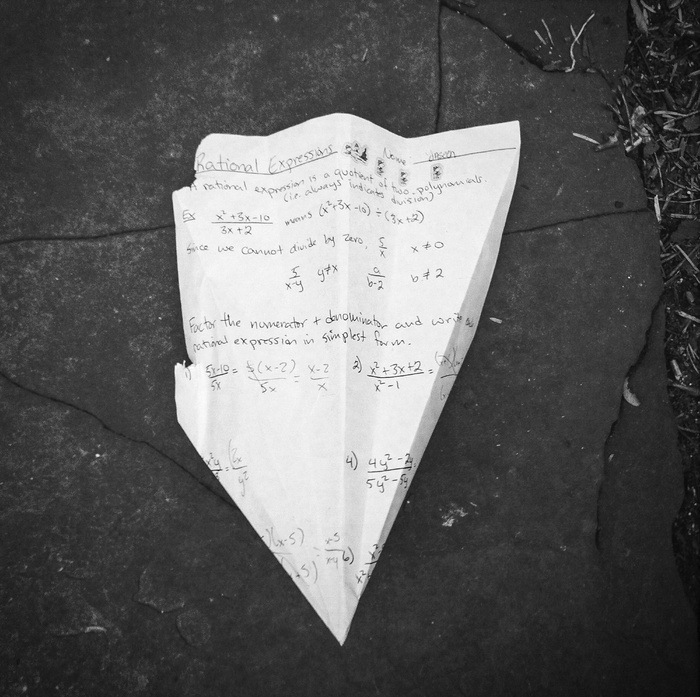 Rational Expressions Name Jason
A rational expression is a quotient of two polynomials.
(i.e. always indicates division)
Ex x²+3x-10/3x+2 means (x²+3x-10) ÷ (3x+2)
Since we cannot divide by zero, 5/x x≠0
5/x-y y≠x a/b-2 b≠2
Factor the numerator + denominator and write
rational expression in simplest form.
1) 5x-10/5x = 5(x-2)/5x = x-2/x 2) x²+3x+2/x²-1 =
4) 4y²-2y/5y²-5y
)(x-5)
6)